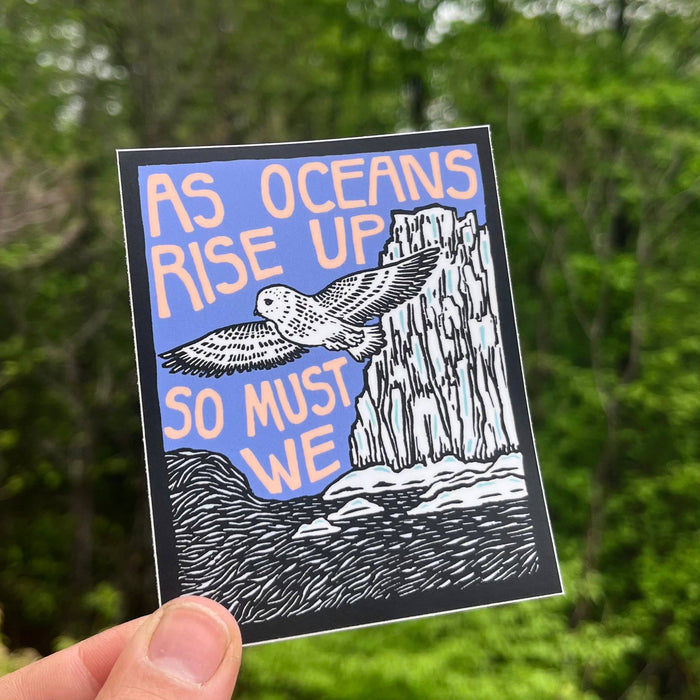 AS OCEANS
RISE UP
SO MUST
WE